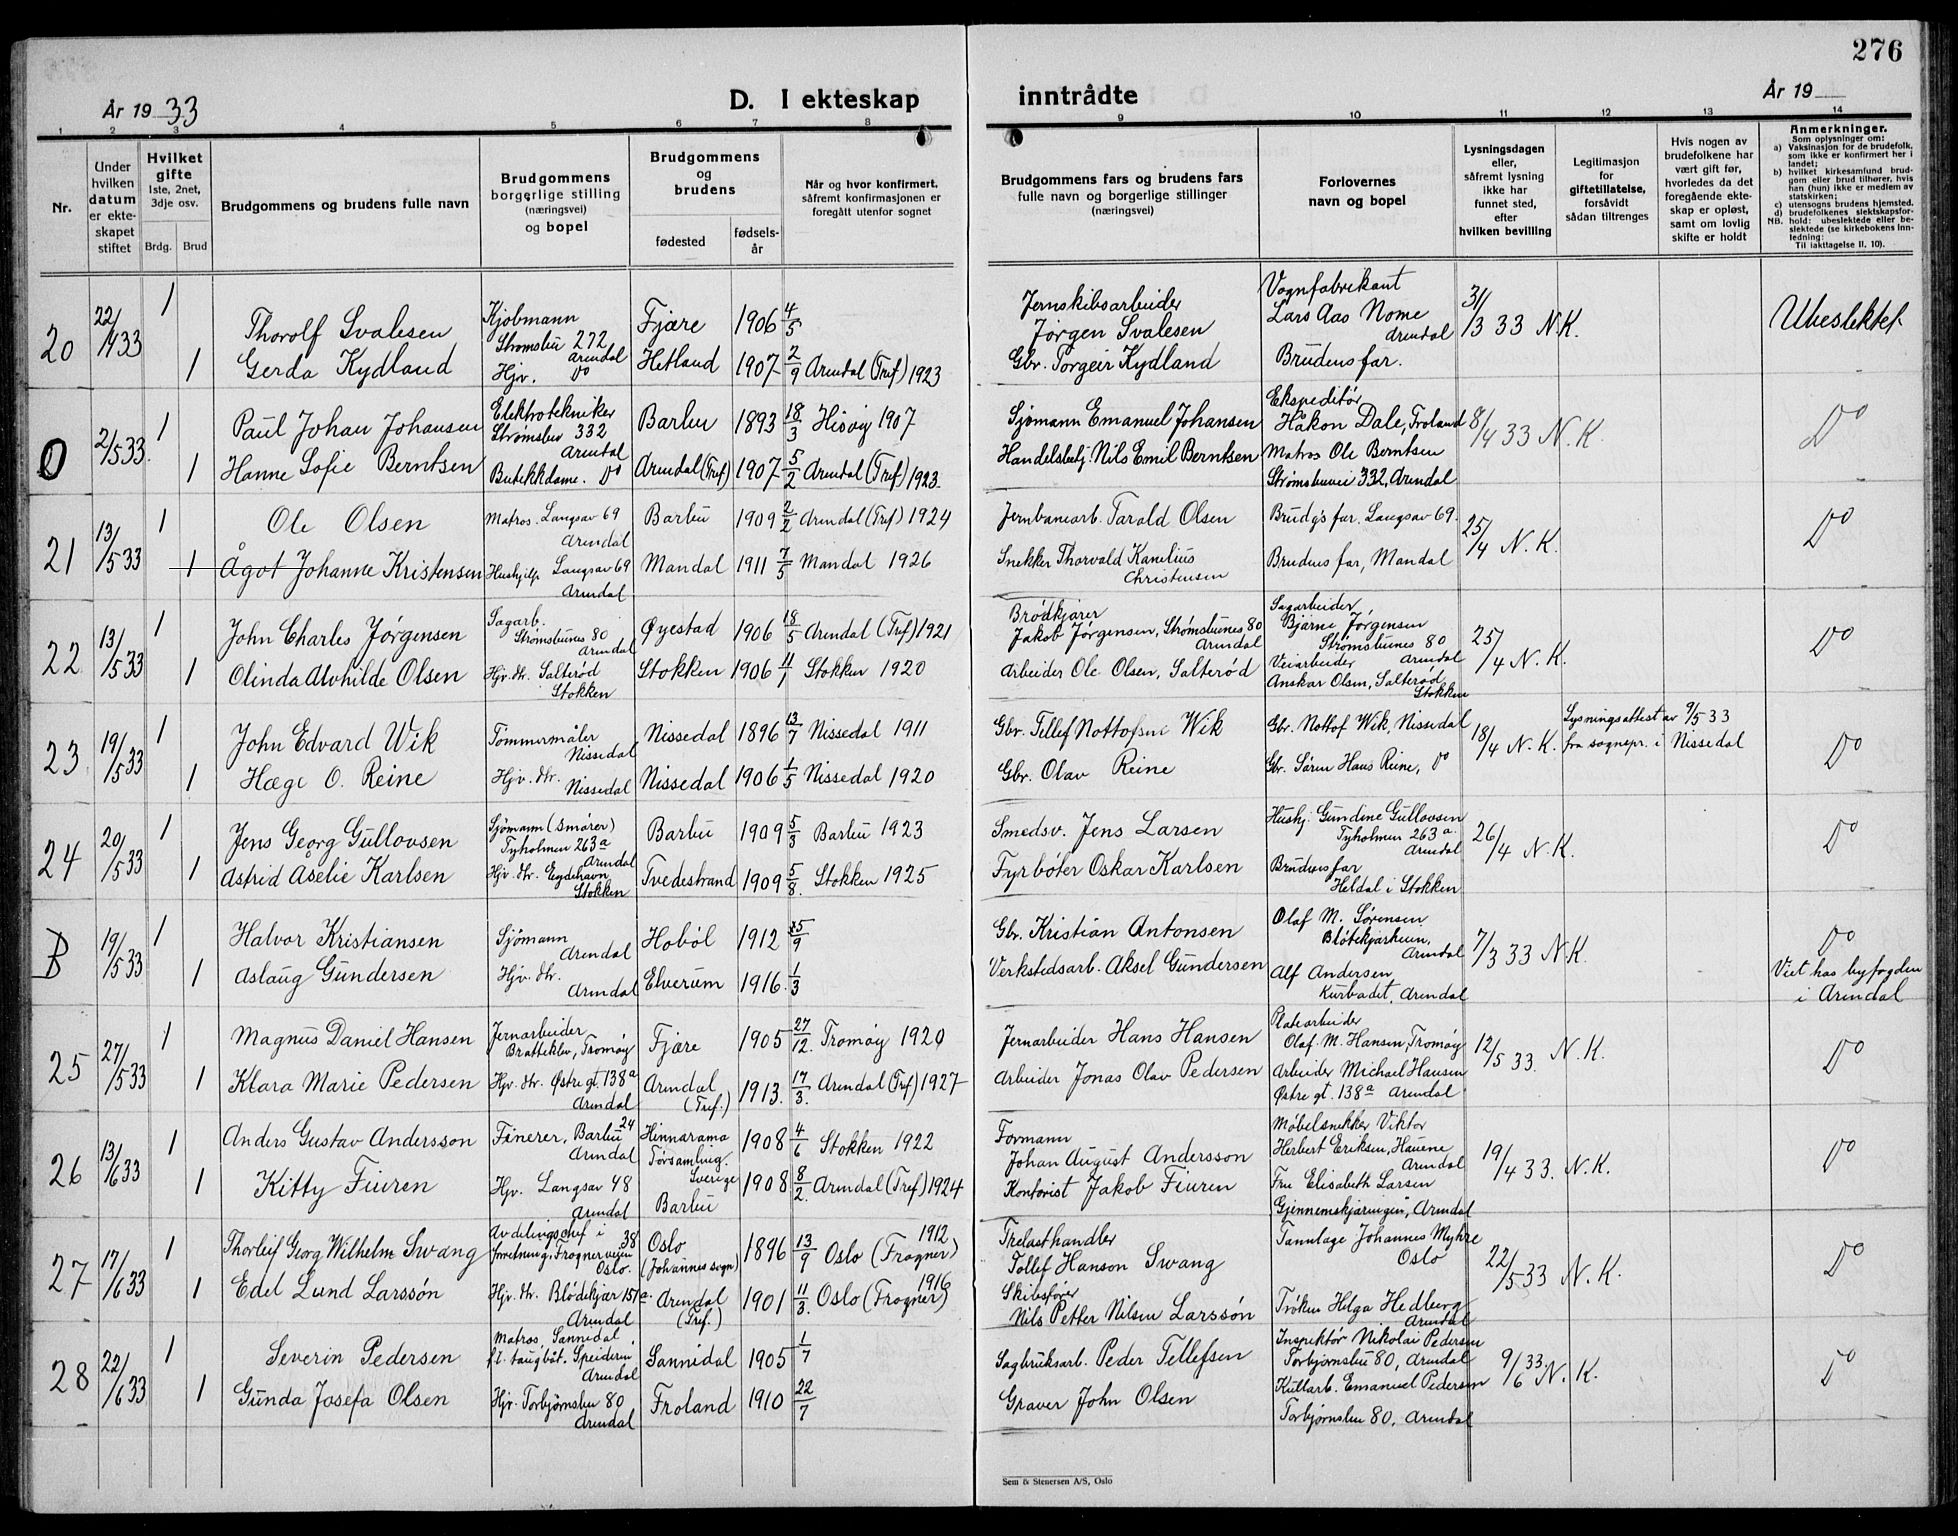 276
År 1933
D. I ekteskap
inntrådte
År 19
1 2 3 4 5 6 7 8 9 10 11 12 13 14
Nr.
Under hvilken datum er ekteskapet stiftet
Hvilket gifte
1ste, 2net, 3dje osv.
Brdg. Brud
Brudgommens og brudens fulle navn
Brudgommens borgerlige stilling (næringsvei) og bopel
Brudgommens og brudens
fødested fødselsår
Når og hvor konfirmert, såfremt konfirmasjonen er foregått utenfor sognet
Brudgommens fars og brudens fars fulle navn og borgerlige stillinger (næringsvei)
Forlovernes navn og bopel
Lysningsdagen eller, såfremt lysning ikke har funnet sted, efter hvilken bevilling
Legitimasjon for giftetillatelse, forsåvidt sådan tiltrenges
Hvis nogen av brudefolkene har vært gift før, hvorledes da det foregående ekteskap er opløst, samt om lovlig skifte er holdt
Anmerkninger.
Som oplysninger om:
a) Vaksinasjon for de brudefolk, som ikke er konfirmert her i landet;
b) hvilket kirkesamfund brudgom eller brud tilhører, hvis han (hun) ikke er medlem av statskirken;
c) utensogns brudens hjemsted.
d) brudefolkenes slektskapsforhold: ubeslektede eller beslektede (se kirkebokens Innledning:
NB. Til iakttagelse II. 10).
20 22/4 33 1 Thorolf Svalesen Kjøbmann Strømsbu 272 Arendal Fjære 1906 4/5 Jernskibsarbeider Jørgen Svalesen Vognfabrikant Lars Aas Nome Arendal 31/3 33 N.K. Ubeslektet
1 Gerda Kydland Hjv. Do Hetland 1907 2/9 Arendal (Tref) 1923 Gbr. Torgeir Kydland Brudens far.
O 2/5 33. 1 Paul Johan Johansen Elektrotekniker Strømsbu 332 Arendal Barbu 1893 18/3 Hisøy 1907 Sjømann Emanuel Johansen Ekspeditør Håkon Dale, Froland 8/4 33 N.K. Do
1 Hanne Sofie Berntsen Butikkdame. Do Arendal (Tref) 1907 5/2 Arendal (Tref) 1923. Handelsbetj. Nils Emil Berntsen Matros Ole Berntsen Strømsbuvei 332, Arendal
21 13/5 33 1 Ole Olsen Matros. Langsæv 69 Arendal Barbu 1909 2/2 Arendal (Tref) 1924 Jernbanearb. Tarald Olsen Brudg's far. Langsæv 69. 25/4 N.K. Do
1 Ågot Johanne Kristensen Hushjelp Langsæv 69 Arendal Mandal 1911 7/5 Mandal 1926 Snekker Thorvald Kanelius Christensen Brudens far, Mandal
22 13/5 33 1 John Charles Jørgensen Sagarb. Strømsbunes 80 Arendal Øyestad 1906 18/5 Arendal (Tref) 1921 Brødkjører Jakob Jørgensen, Strømsbunes 80 Arendal Sagarbeider Bjarne Jørgensen Strømsbunes 80 Arendal 25/4 N.K. Do
1 Olinda Alvhilde Olsen Hjv. dtr. Salterød Stokken Stokken 1906 4/1 Stokken 1920 Arbeider Ole Olsen, Salterød Veiarbeider Anskar Olsen, Salterød Stokken
23 19/5 33 1 John Edvard Wik Tømmermåler Nissedal Nissedal 1896 13/7 Nissedal 1911 Gbr. Tellef Nottofsen Wik Gbr. Nottof Wik, Nissedal 18/4 N.K. Lysningsattest av 9/5 33 fra sognepr. i Nissedal Do
1 Hæge O. Reine Hjv. dtr. Nissedal Nissedal 1906 1/5 Nissedal 1920 Gbr. Olav Reine Gbr. Søren Hans Reine, Do
24 20/5 33 1 Jens Georg Gullovsen Sjømann (smører) Tyholmen 263a Arendal Barbu 1909 5/3 Barbu 1923 Smedsv. Jens Larsen Hushj. Gundine Gullovsen Tyholmen 263a. Arendal 26/4 N.K. Do
1 Astrid Aselie Karlsen Hjv. dtr. Eydehavn Stokken Tvedestrand 1909 5/8 Stokken 1925 Fyrbøter Oskar Karlsen Brudens far Heldal i Stokken
B 19/5 33 1 Halvor Kristiansen Sjømann Arendal Hobøl 1912 25/9 Gbr. Kristian Antonsen Olaf M. Sørensen Bløtekjærheien, Arendal 7/3 33 N.K. Do
1 Aslaug Gundersen Hjv. dtr. Arendal Elverum 1916. 1/3 Verkstedsarb. Aksel Gundersen Alf Andersen Kurbadet, Arendal Viet hos byfogden i Arendal
25 27/5 33 1 Magnus Daniel Hansen Jernarbeider Bratteklev, Tromøy Fjære 1905 27/12. Tromøy 1920 Jernarbeider Hans Hansen Platearbeider Olaf. M. Hansen, Tromøy 12/5 33. N.K. Do
1 Klara Marie Pedersen Hjv. dtr. Østre gt. 138a Arendal Arendal (Tref.) 1913. 17/3. Arendal (Tref) 1927 Arbeider Jonas Olav Pedersen Arbeider Michael Hansen Østre gt. 138a Arendal
26 13/6 33 1 Anders Gustav Andersson Finerer, Barbu 24 Arendal Hinnarama Församling. Sverige 1908 4/6 Stokken 1922 Formann Johan August Andersson Møbelsnekker Viktor Herbert Eriksen, Hauene Arendal 19/4 33. N.K. Do
1 Kitty Fiuren Hjv. Langsæv 48 Arendal Barbu 1908 8/2. Arendal (Tref) 1924 Kontorist Jakob Fiuren Fru Elisabeth Larsen Gjennemskjæringen, Arendal
27 17/6 33 1 Thorleif Georg Wilhelm Swang Avdelingschef i forretning, Frognerveien 38 Oslo. Oslo (Johannes sogn) 1896 13/9 Oslo (Frogner) 1912 Trelasthandler Tollef Hanson Swang Tannlæge Johannes Myhre Oslo 22/5 33 N.K. Do
1 Edel Lund Larssøn Hjv. dtr. Blødekjær 151a Arendal Arendal (Tref.) 1901 11/3. Oslo (Frogner) 1916 Skibsfører Nils Petter Nilsen Larssøn Frøken Helga Hedberg Arendal
28 22/6 33 1 Severin Pedersen Matros, Sannidal, f.t. taugbåt. Speideren Arendal Sannidal 1905 1/7 Sagbruksarb. Peder Tellefsen Inspektør Nikolai Pedersen Torbjørnsbu 80, Arendal 9/6 33. N.K. Do
1 Gunda Josefa Olsen Hjv. Torbjørnsbu 80 Arendal Froland 1910 22/7 Graver John Olsen Kullarb. Emanuel Pedersen Torbjørnsbu 80, Arendal
Sem & Stenersen A/S, Oslo